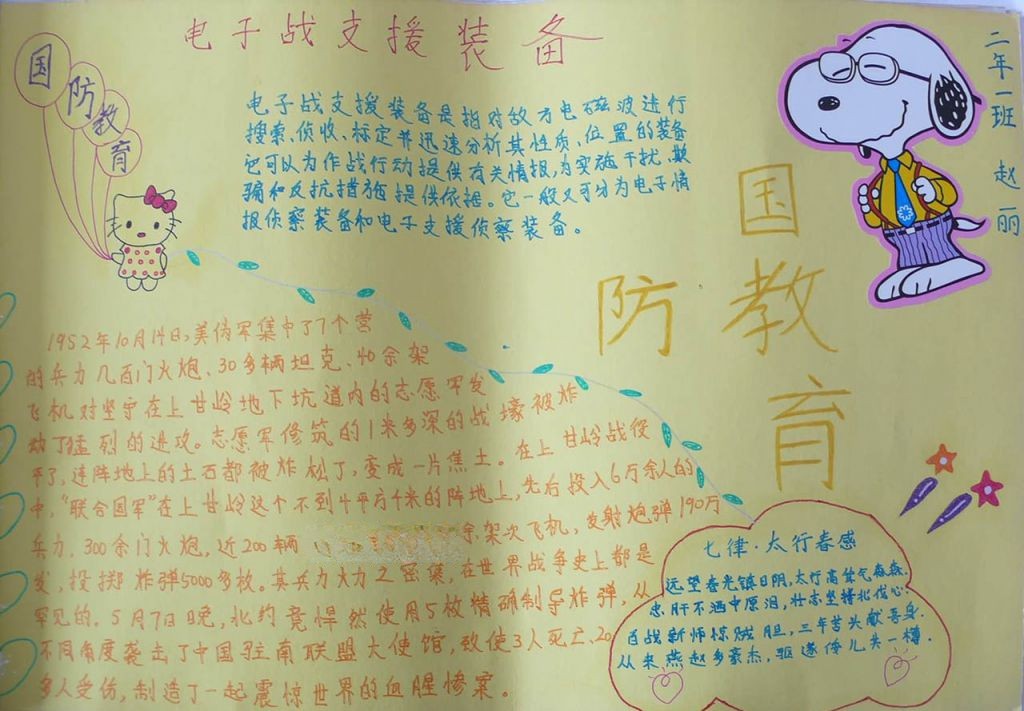 电子战支援装备
国防教育
二年一班 赵丽
电子战支援装备是指对敌方电磁波进行
搜索、侦收、标定并迅速分析其性质、位置的装备
它可以为作战行动提供有关情报,为实施干扰、欺
骗和反抗措施提供依据。它一般又可分为电子情
报侦察装备和电子支援侦察装备。
国
防 教
育
1952年10月14日,美伪军集中了7个营
的兵力几百门火炮、30多辆坦克、40余架
飞机对坚守在上甘岭地下坑道内的志愿军发
动了猛烈的进攻。志愿军修筑的1米多深的战壕被炸
平了,连阵地上的土石都被炸松了,变成一片焦土。在上甘岭战役
中,“联合国军”在上甘岭这个不到4平方千米的阵地上,先后投入6万余人的
兵力,300余门火炮,近200辆 余架次飞机,发射炮弹190万
发,投掷炸弹5000多枚。其兵力火力之密集,在世界战争史上都是
罕见的。5月7日晚,北约竟悍然使用5枚精确制导炸弹,从
不同角度袭击了中国驻南联盟大使馆,致使3人死亡,20
多人受伤,制造了一起震惊世界的血腥惨案。
七律·太行春感
远望春光镇日阴,太行高耸气森森.
忠肝不洒中原泪,壮志坚持北伐心.
百战新师惊贼胆,三年苦头献吾身.
从来燕赵多豪杰,驱逐倭儿共一樽.